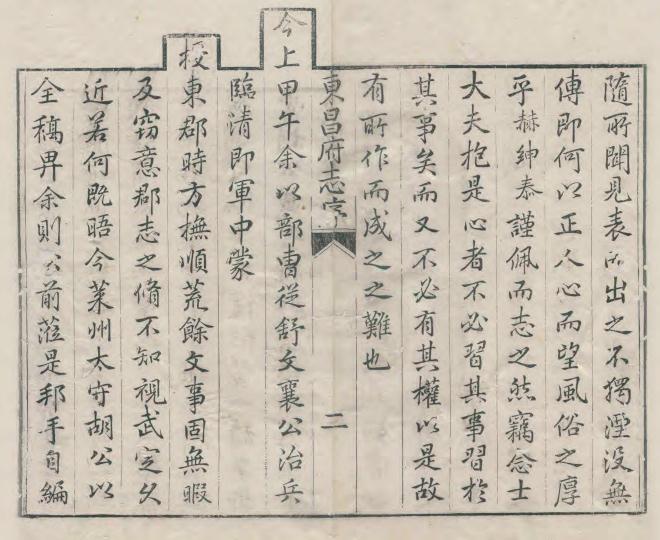 隨所聞見表而出之不獨湮沒無
傳即何以正人心而望風俗之厚
乎赫紳泰謹佩而志之然竊念士
大夫抱是心者不必習其事習於
其事矣而又不必有其權以是故
有所作而成之之難也
東昌府志序 二
今上甲午余以部曹從舒文襄公治兵
臨清即軍中蒙
授東郡時方撫順荒餘文事固無暇
及窃意郡志之脩不知視武定久
近若何既晤今萊州太守胡公以
全稿畀余則公前蒞是邦手自編